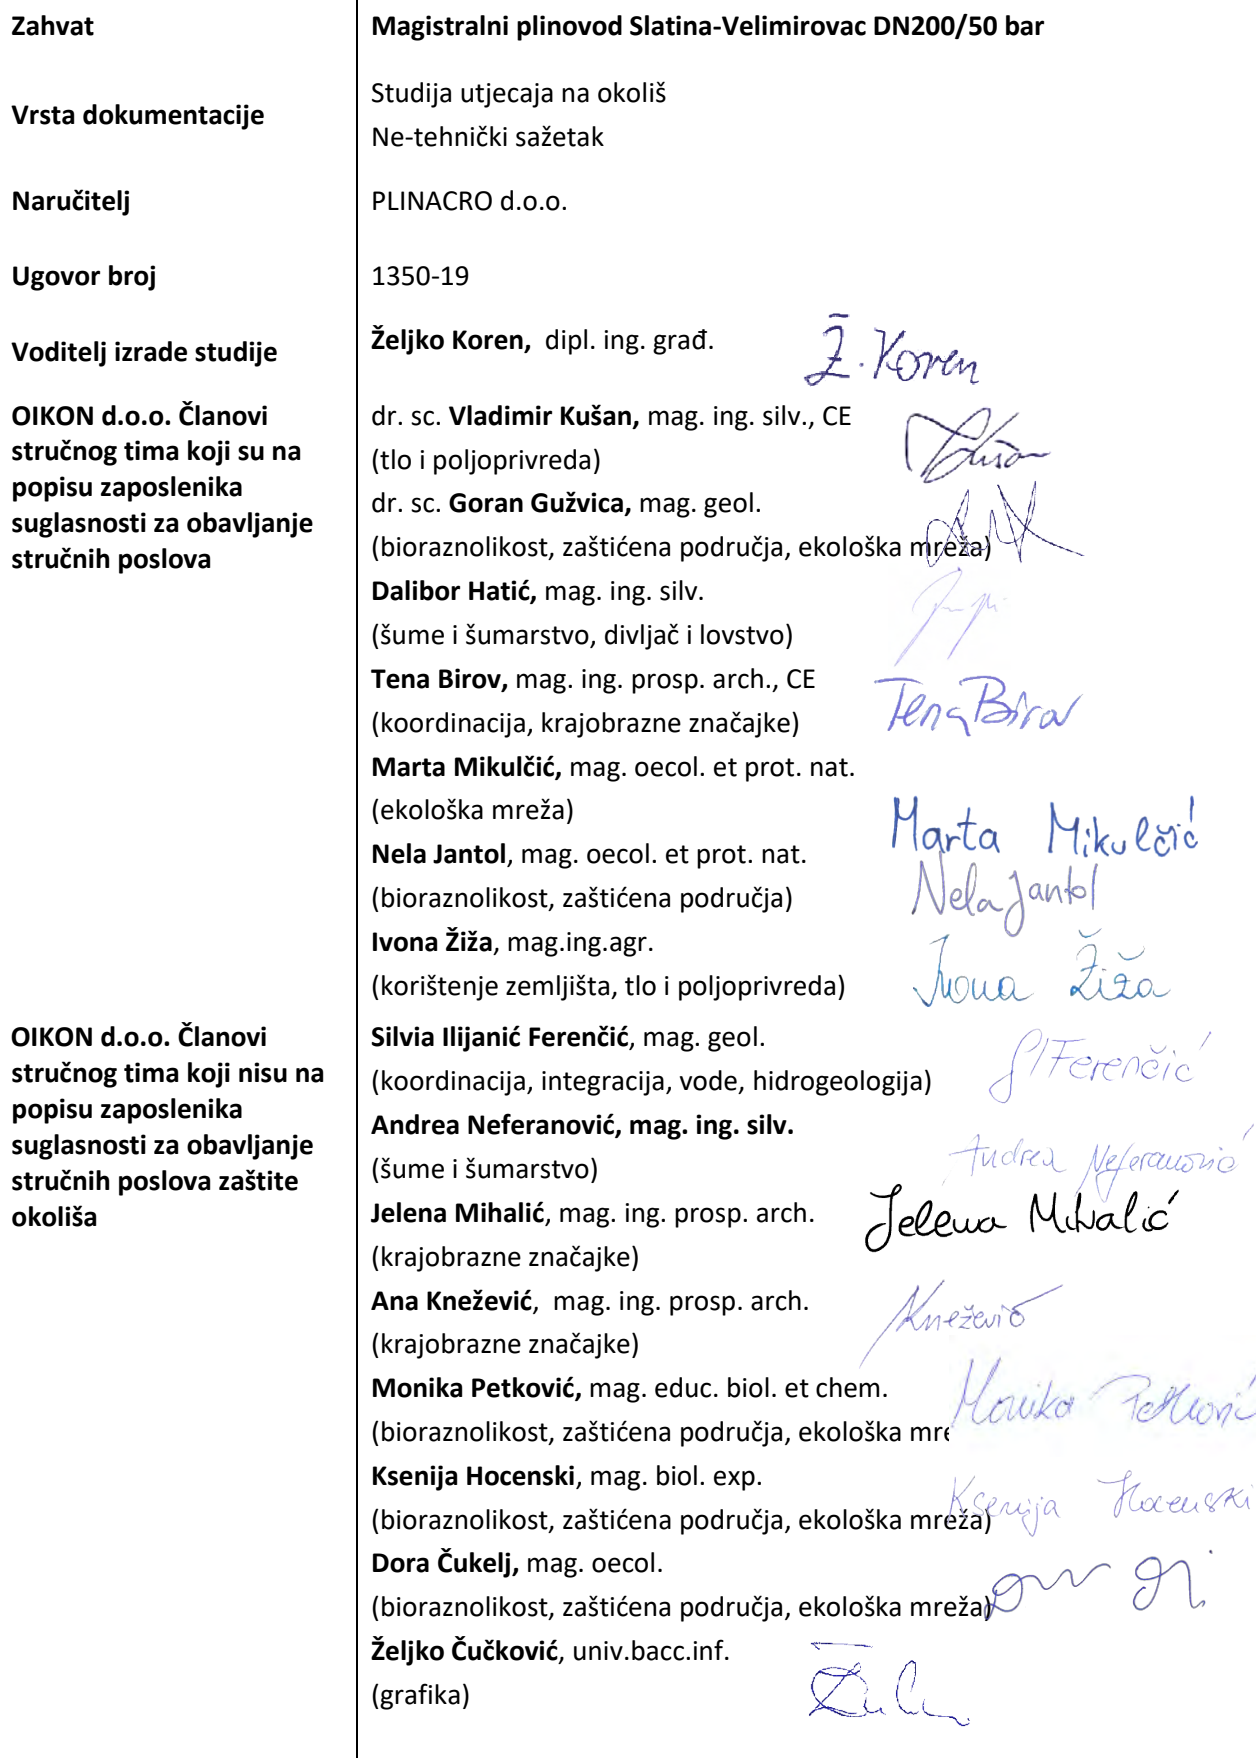 Zahvat
Magistralni plinovod Slatina-Velimirovac DN200/50 bar
Vrsta dokumentacije
Studija utjecaja na okoliš
Ne-tehnički sažetak
Naručitelj
PLINACRO d.o.o.
Ugovor broj
1350-19
Voditelj izrade studije
Željko Koren, dipl. ing. građ.
Ž. Koren
OIKON d.o.o. Članovi
stručnog tima koji su na
popisu zaposlenika
suglasnosti za obavljanje
stručnih poslova
dr. sc. Vladimir Kušan, mag. ing. silv., CE
(tlo i poljoprivreda)
dr. sc. Goran Gužvica, mag. geol.
(bioraznolikost, zaštićena područja, ekološka mreža)
Dalibor Hatić, mag. ing. silv.
(šume i šumarstvo, divljač i lovstvo)
Tena Birov, mag. ing. prosp. arch., CE
Tena Birov
(koordinacija, krajobrazne značajke)
Marta Mikulčić, mag. oecol. et prot. nat.
(ekološka mreža)
Marta Mikulčić
Nela Jantol, mag. oecol. et prot. nat.
Nela Jantol
(bioraznolikost, zaštićena područja)
Ivona Žiža, mag.ing.agr.
Ivona Žiža
(korištenje zemljišta, tlo i poljoprivreda)
OIKON d.o.o. Članovi
stručnog tima koji nisu na
popisu zaposlenika
suglasnosti za obavljanje
stručnih poslova zaštite
okoliša
Silvia Ilijanić Ferenčić, mag. geol.
SIFerenčić
(koordinacija, integracija, vode, hidrogeologija)
Andrea Neferanović, mag. ing. silv.
Andrea Neferanović
(šume i šumarstvo)
Jelena Mihalić, mag. ing. prosp. arch.
Jelena Mihalić
(krajobrazne značajke)
Ana Knežević, mag. ing. prosp. arch.
Knežević
(krajobrazne značajke)
Monika Petković, mag. educ. biol. et chem.
Monika Petković
(bioraznolikost, zaštićena područja, ekološka mre
Ksenija Hocenski, mag. biol. exp.
Ksenija Hocenski
(bioraznolikost, zaštićena područja, ekološka mreža)
Dora Čukelj, mag. oecol.
(bioraznolikost, zaštićena područja, ekološka mreža)
Željko Čučković, univ.bacc.inf.
(grafika)